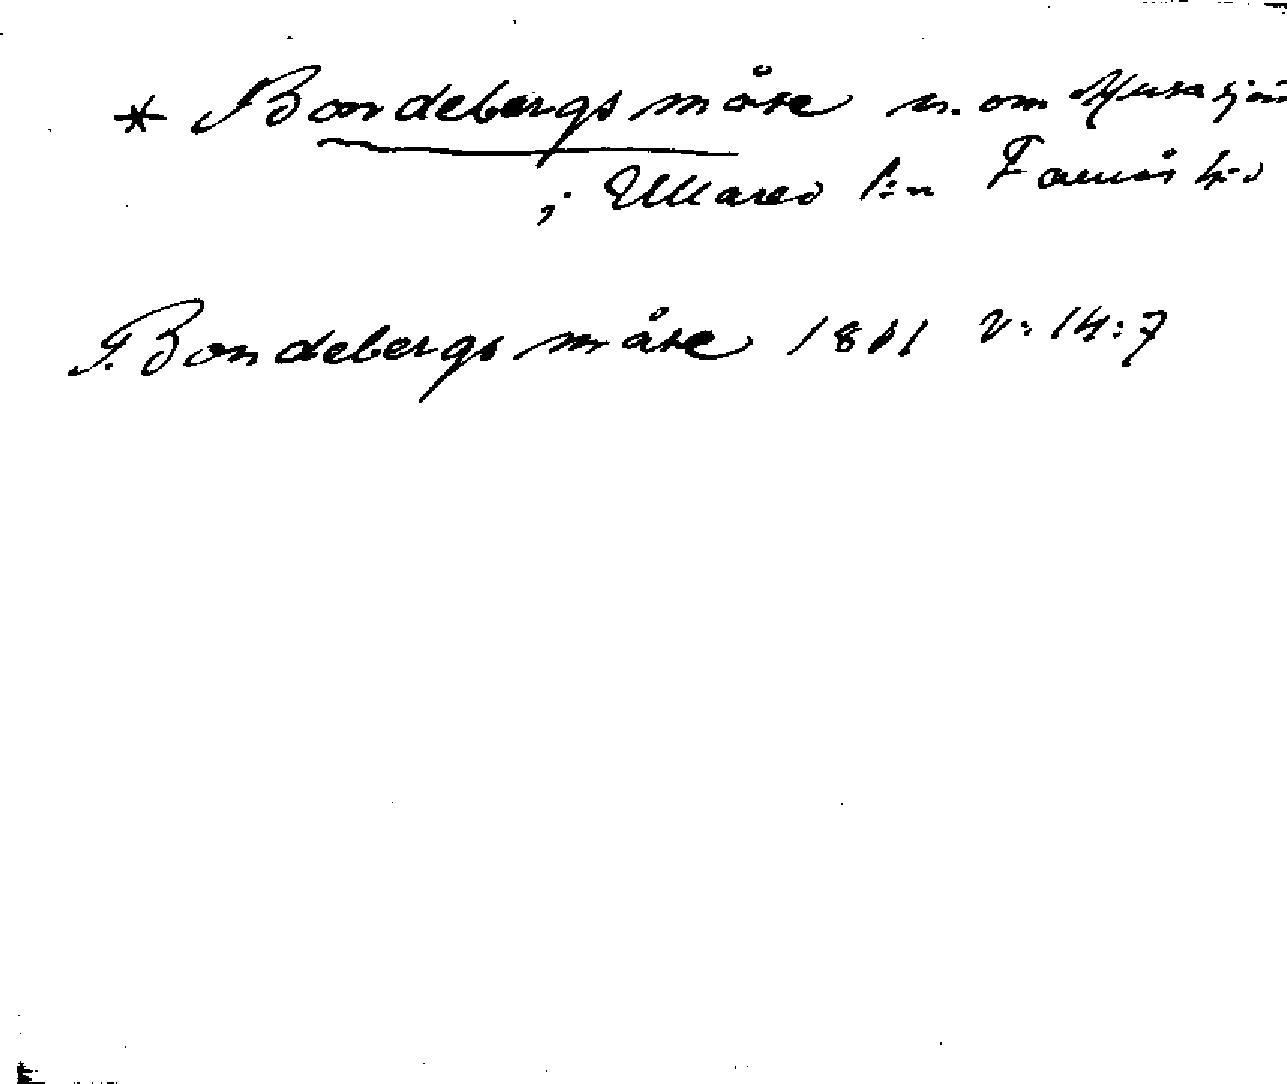 * Bondebergs måse n. om
i Ullared s:n Faurås h:d
Bondebergs måse 1801 V: 14:7